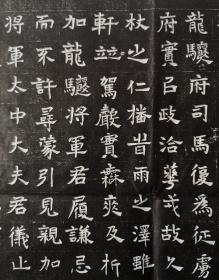 龍驤府司馬復為征虜
府實㠯政治華戎故久
杖之仁播昔雨之澤雖
軒並駕麗賓森爽及析
加龍驤將軍君履謙忌
而不許尋蒙引見親加
將軍太中大夫君儀止